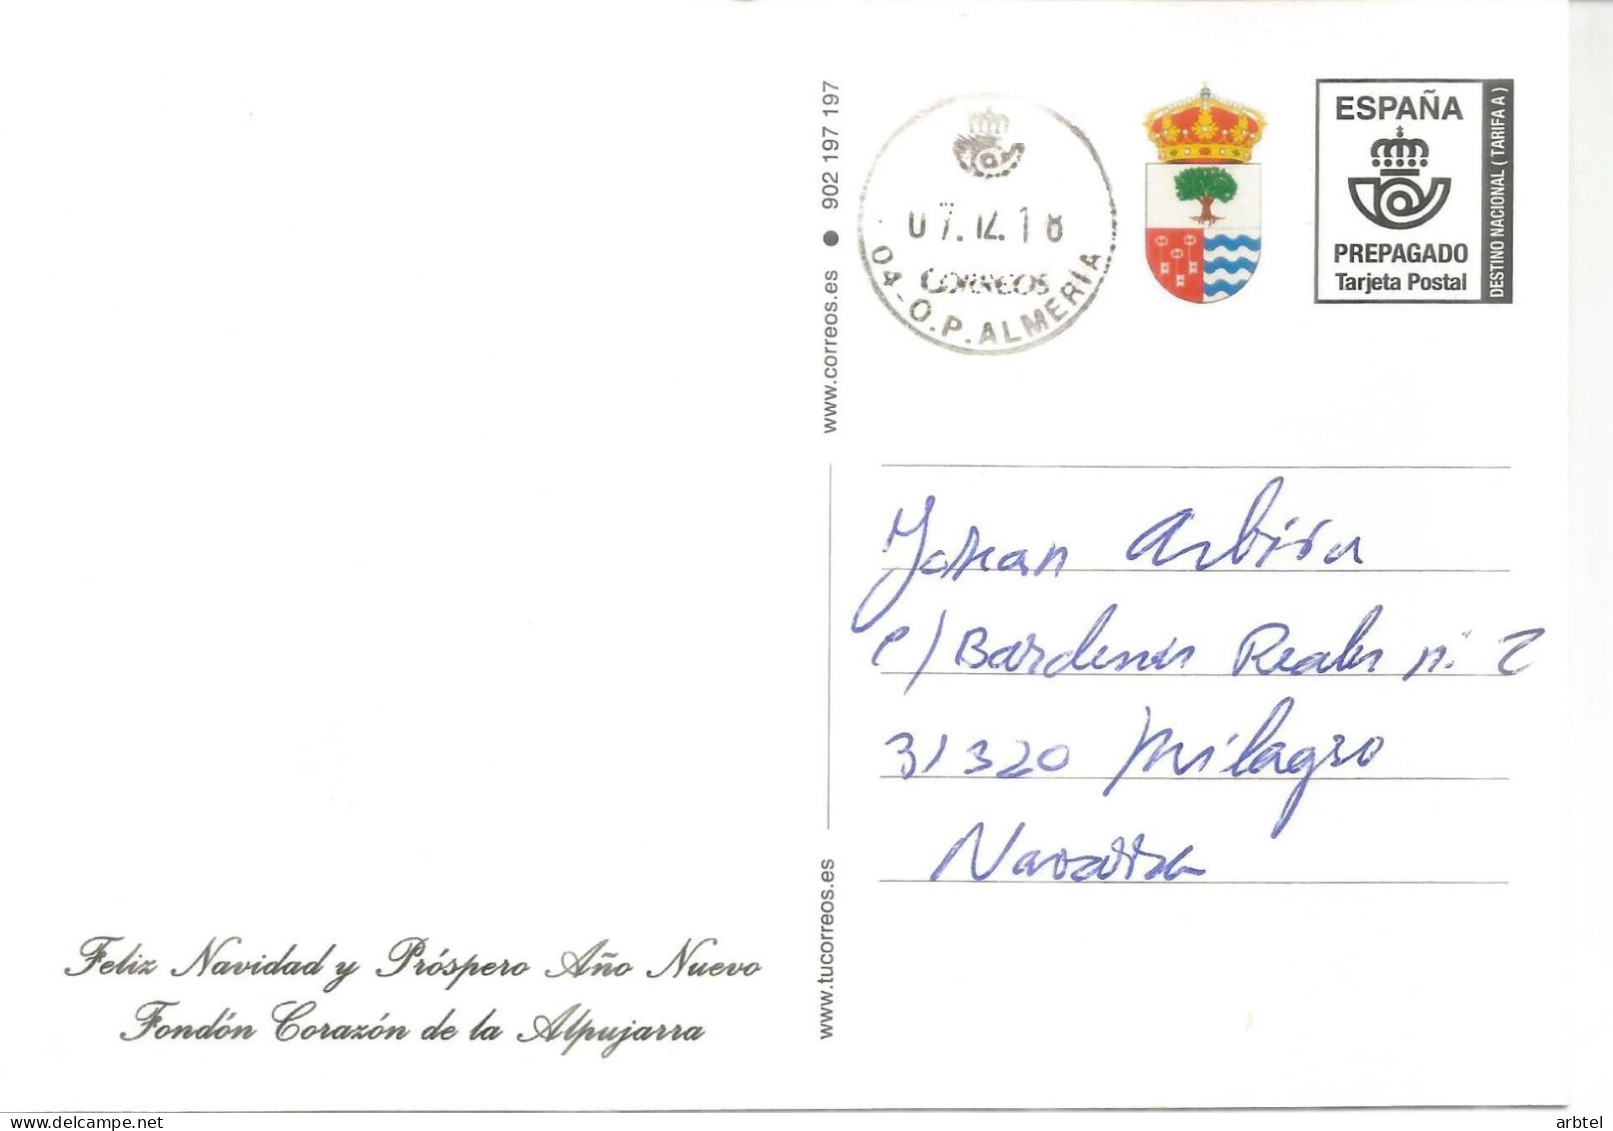 902 197 197
www.correos.es
07.12.18
CORREOS
04-O.P. ALMERÍA
ESPAÑA
PREPAGADO
Tarjeta Postal
DESTINO NACIONAL ( TARIFA A )
Johan
c/ Bardenas Reales n. 2
31320 Milagro
Navarra
www.tucorreos.es
Feliz Navidad y Próspero Año Nuevo
Fondón Corazón de la Alpujarra
arbtel